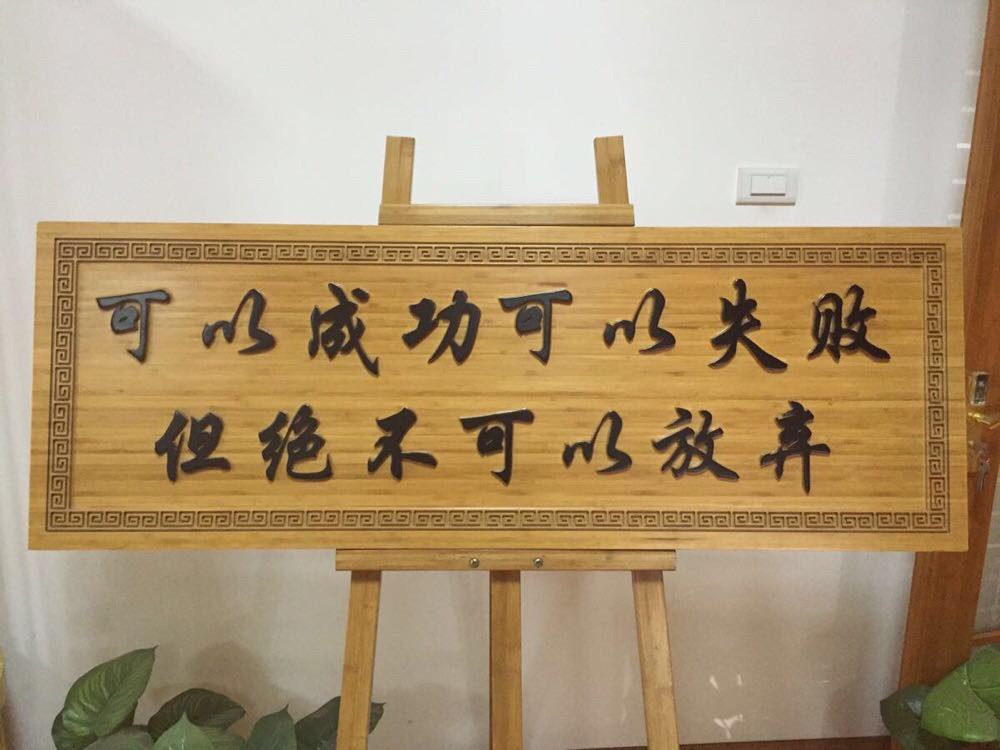 可以成功可以失败
但绝不可以放弃